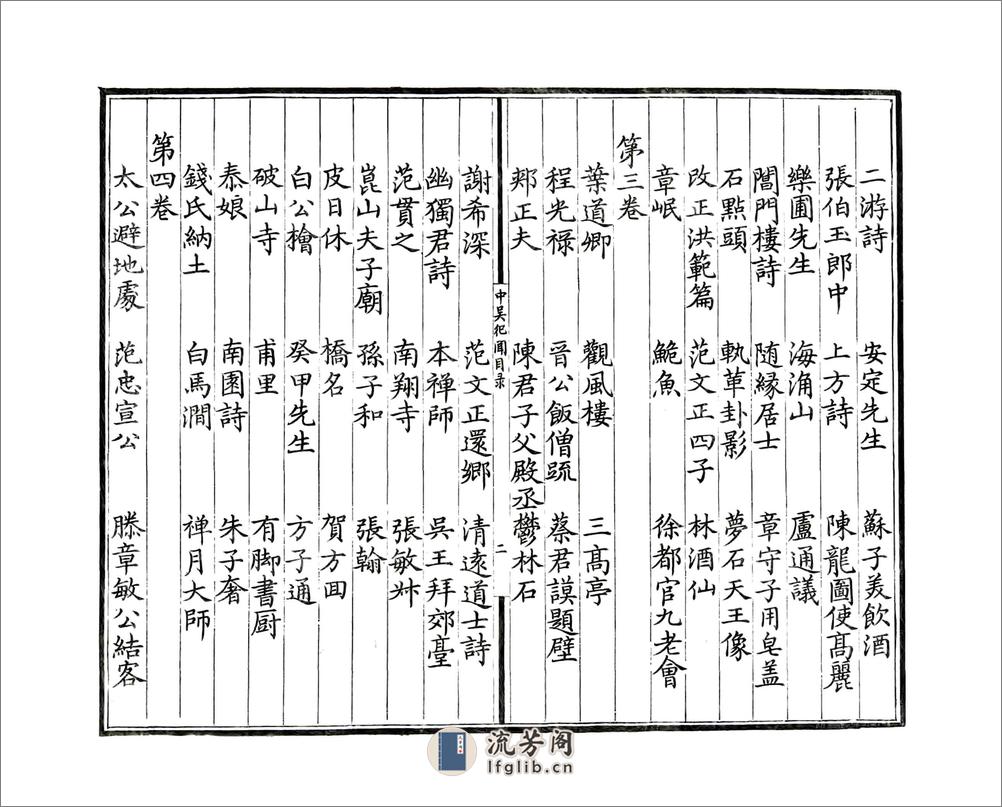 二游詩 安定先生 蘇子美飲酒
張伯玉郎中 上方詩 陳龍圖使髙麗
樂圃先生 海涌山 盧通議
閶門樓詩 随縁居士 章守子用皂盖
石點頭 軌革卦影 夢石天王像
改正洪範篇 范文正四子 林酒仙
章岷 鮠魚 徐都官九老會
第三卷
葉道卿 觀風樓 三髙亭
程光禄 晉公飯僧䟽 蔡君謨題壁
郟正夫 陳君子父殿丞 鬱林石
中吴紀聞目录
二
謝希深 范文正還鄉 清遠道士詩
幽獨君詩 本禅師 吳王拜郊臺
范貫之 南翔寺 張敏叔
崑山夫子廟 孫子和 張翰
皮日休 橋名 賀方回
白公檜 癸甲先生 方子通
破山寺 甫里 有脚書厨
泰娘 南園詩 朱子奢
錢氏納土 白馬澗 禅月大師
第四卷
太公避地處 范忠宣公 滕章敏公結客
流芳阁
lfglib.cn